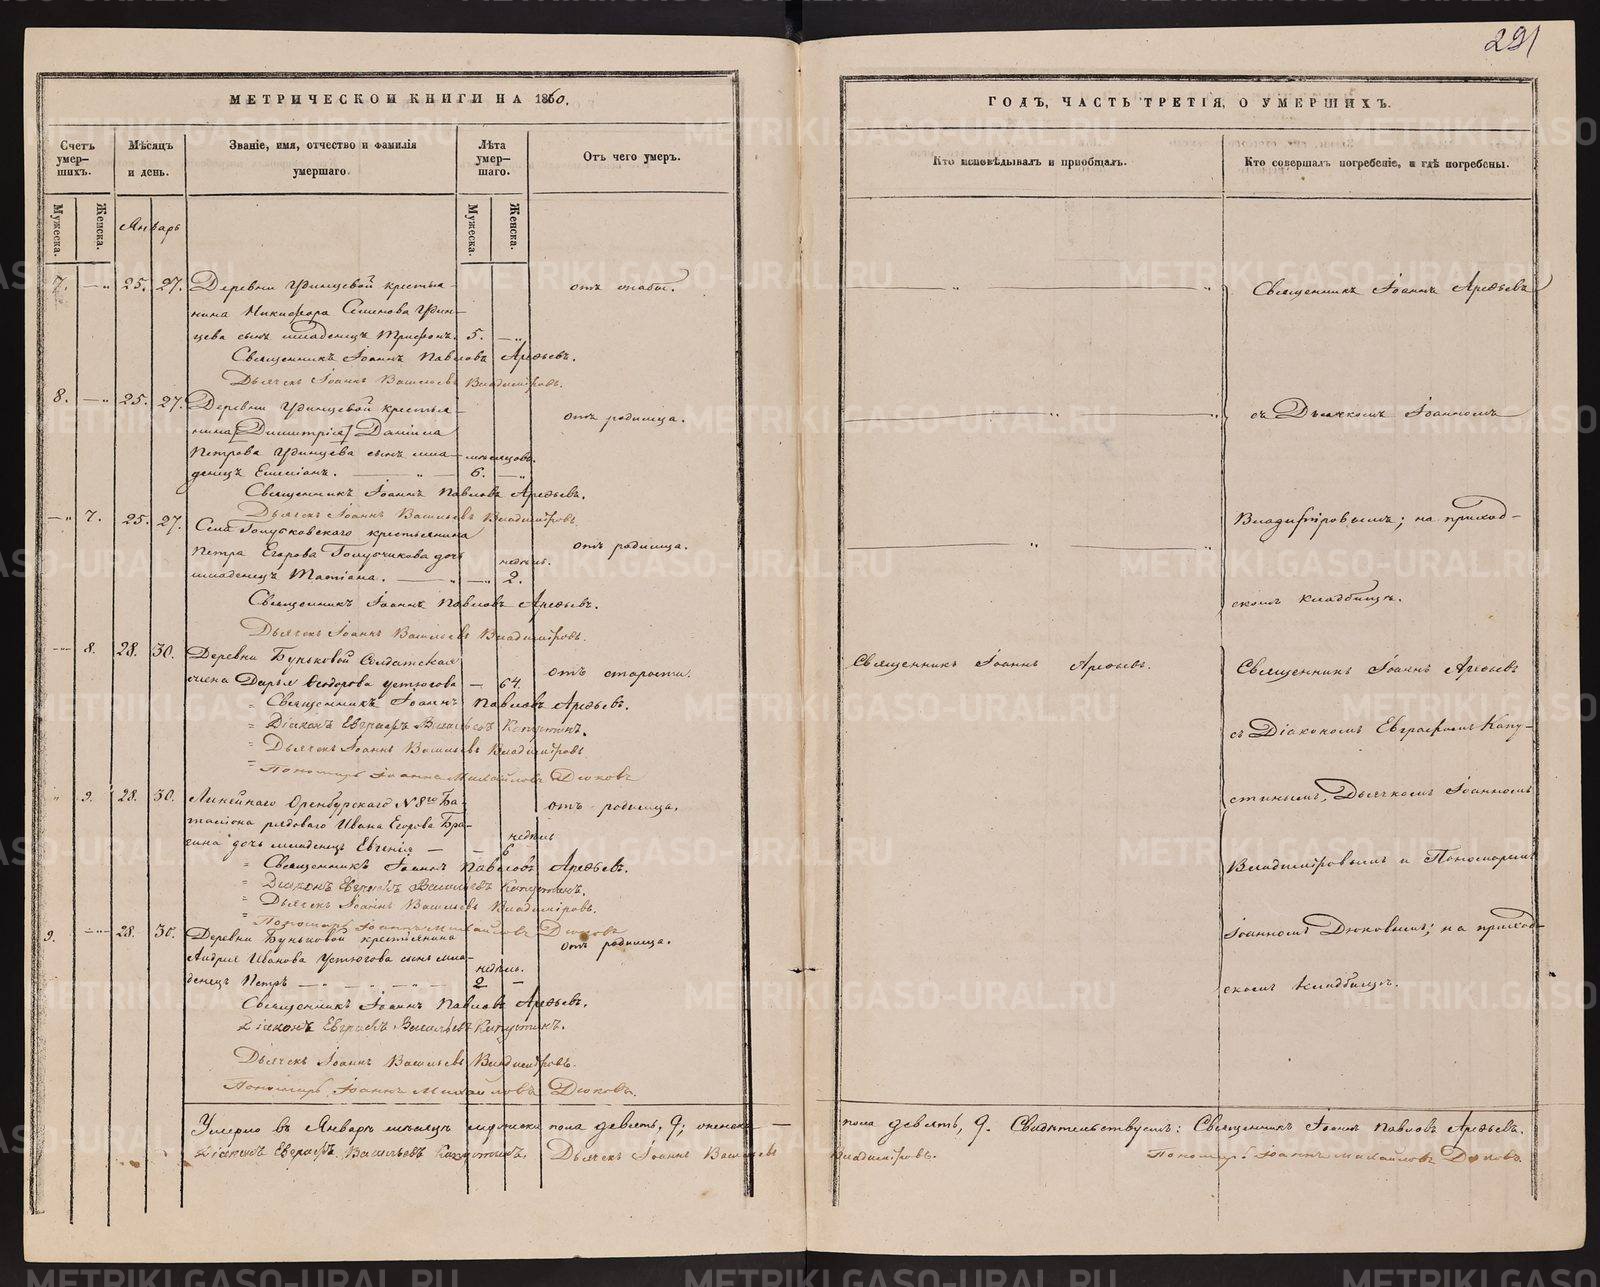 291
МЕТРИЧЕСКОЙ КНИГИ НА 1860.
ГОДЪ, ЧАСТЬ ТРЕТІЯ, О УМЕРШИХЪ.
Счетъ умер-шихъ.
Мѣсяцъ и день.
Званіе, имя, отчество и фамилія умершаго.
Лѣта умер-шаго.
Отъ чего умеръ.
Кто исповѣдывалъ и пріобщалъ.
Кто совершалъ погребеніе, и гдѣ погребены.
Мужеска.
Женска.
Январь
Мужеска.
Женска.
7. — „ 25. 27. Деревни Удинцевой крестья-
нина Никифора Семенова Удин-
цева сынъ младенецъ Трифонъ. 5. — „
отъ оспы.
Священникъ Іоаннъ Павловъ Арефьевъ.
Дьячекъ Іоаннъ Васильевъ Владиміровъ.
8. — „ 25. 27. Деревни Удинцевой крестья-
нина [Димитрія] Даніила
Петрова Удинцева сынъ мла- мѣсяцовъ.
денецъ Емиліанъ. — „ 6. — „
отъ родимца.
Священникъ Іоаннъ Павловъ Арефьевъ.
Дьячекъ Іоаннъ Васильевъ Владиміровъ.
— „ 7. 25. 27. Села Голубковскаго крестьянина
Петра Егорова Голубчикова дочь недѣль.
младенецъ Татіана. — „ — „ 2.
отъ родимца.
Священникъ Іоаннъ Павловъ Арефьевъ.
Дьячекъ Іоаннъ Васильевъ Владиміровъ.
8. 28. 30. Деревни Буньковой Солдатская
жена Дарья Ѳеодорова Устюгова — 64.
отъ старости.
Священникъ Іоаннъ Павловъ Арефьевъ.
Діаконъ Евграфъ Васильевъ Капустинъ.
Дьячекъ Іоаннъ Васильевъ Владиміровъ
Пономарь Іоаннъ Михайловъ Дюковъ
„ 9. 28. 30. Линейнаго Оренбурскаго N 8го Ба-
таліона рядоваго Ивана Егорова Бра-
гина дочь младенецъ Евгенія — — недѣль 6
отъ родимца.
Священникъ Іоаннъ Павловъ Арефьевъ.
Діаконъ Евграфъ Васильевъ Капустинъ.
Дьячекъ Іоаннъ Васильевъ Владиміровъ.
Пономарь Іоаннъ Михайловъ Дюковъ
9. — „ 28. 30. Деревни Буньковой крестьянина
Андрея Иванова Устюгова сынъ мла- недѣль.
денецъ Петръ — „ — „ 2 —
отъ родимца.
Священникъ Іоаннъ Павловъ Арефьевъ.
Діаконъ Евграфъ Васильевъ Капустинъ.
Дьячекъ Іоаннъ Васильевъ Владиміровъ.
Пономарь Іоаннъ Михайловъ Дюковъ.
Священникъ Іоаннъ Арефьевъ
съ Дьячкомъ Іоанномъ
Владиміровымъ; на приход-
скомъ кладбищѣ.
Священникъ Іоаннъ Арефьевъ.
Священникъ Іоаннъ Арефьевъ
съ Діакономъ Евграфомъ Капу-
стинымъ, Дьячкомъ Іоанномъ
Владиміровымъ и Пономаремъ
Іоанномъ Дюковымъ; на приход-
скомъ кладбищѣ.
Умерло въ Январѣ мѣсяцѣ мужеска пола девять, 9; женска — пола девять, 9. Свидѣтельствуемъ: Священникъ Іоаннъ Павловъ Арефьевъ.
Діаконъ Евграфъ Васильевъ Капустинъ. Дьячекъ Іоаннъ Васильевъ Владиміровъ. Пономарь Іоаннъ Михайловъ Дюковъ.
METRIKI.GASO-URAL.RU